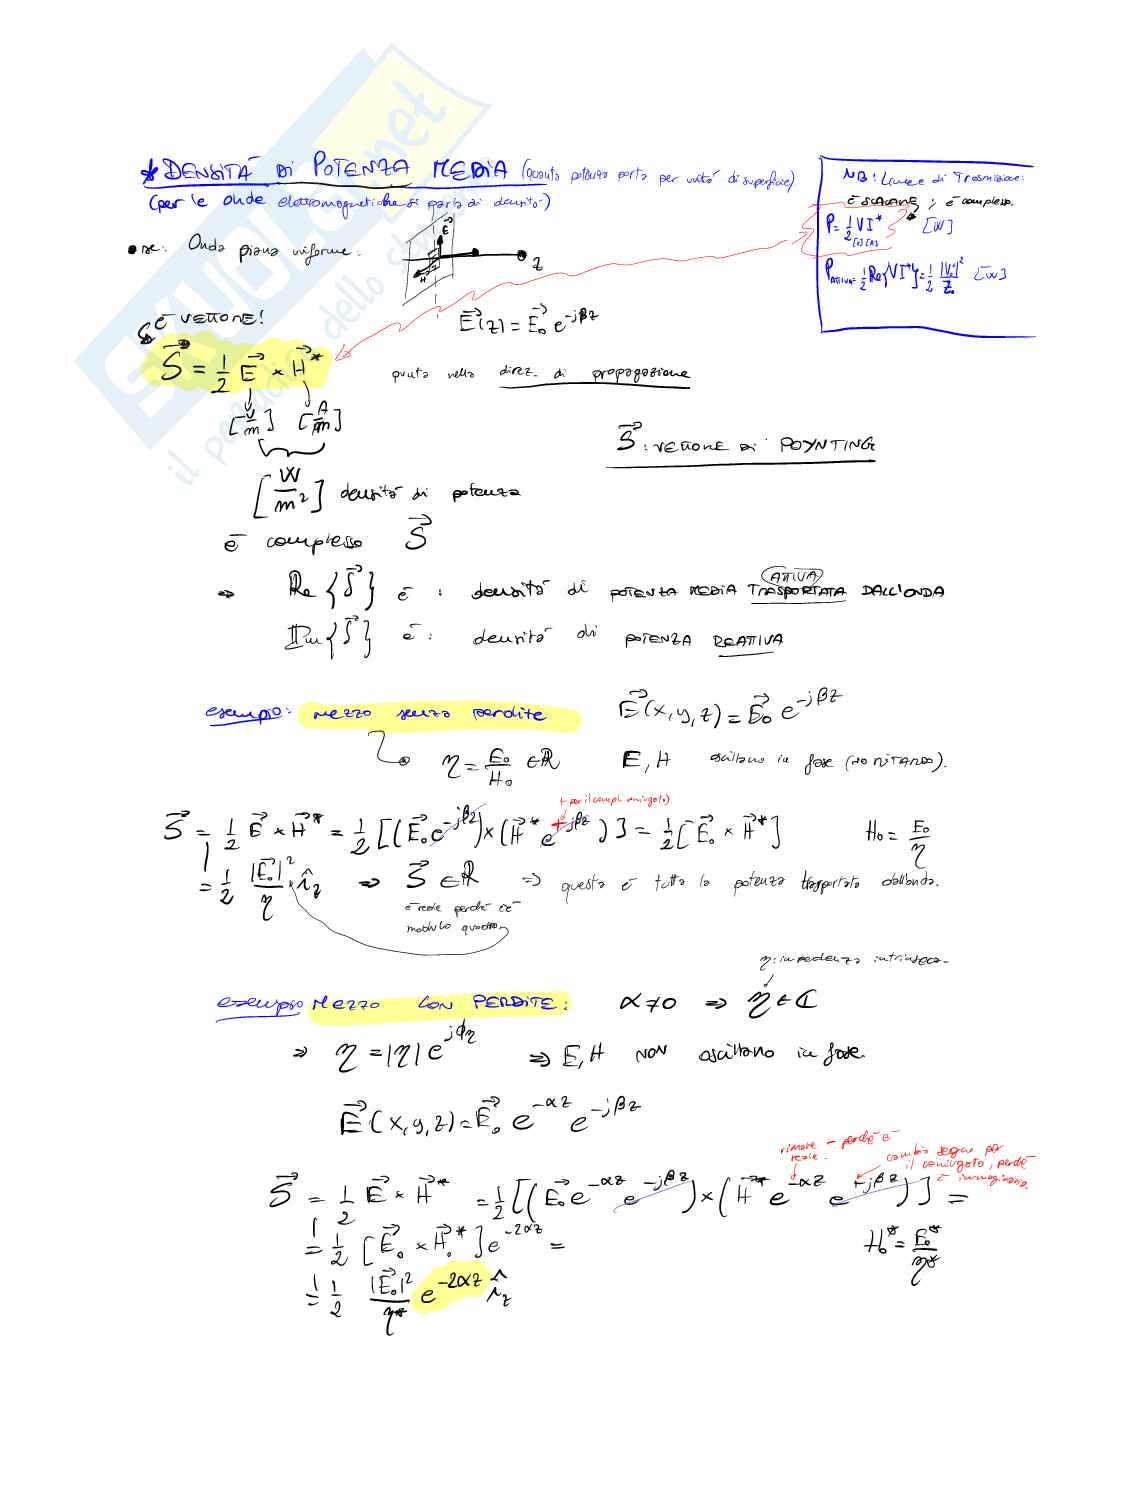 * DENSITÀ DI POTENZA MEDIA (quanta potenza porta per unità di superficie)
(per le onde elettromagnetiche si parla di densità)
NB: Linee di Trasmissione:
È SCALARE; è complesso.
P = 1/2 VI* [W]
[V][A]
P ATTIVA = 1/2 Re{VI*} = 1/2 |V₀|²/Z₀ [W]
Onda piana uniforme:
E
H
z
È VETTORE!
E(z) = E₀ e^-jβz
S = 1/2 E × H*
punta nella direz. di propagazione
[V/m] [A/m]
S: VETTORE DI POYNTING
[W/m²] densità di potenza
è complesso S
⇒ Re{S} è: densità di POTENZA MEDIA ATTIVA TRASPORTATA DALL'ONDA
Im{S} è: densità di POTENZA REATTIVA
esempio: mezzo senza perdite
E(x,y,z) = E₀ e^-jβz
η = E₀/H₀ ∈ ℝ
E, H oscillano in fase (NO RITARDO).
+ per il compl. coniugato)
S = 1/2 E × H* = 1/2 [(E₀ e^-jβz) × (H* e^+jβz)] = 1/2 [E₀ × H*]
H₀ = E₀/η
= 1/2 |E₀|²/η i_z ⇒ S ∈ ℝ ⇒ questa è tutta la potenza trasportata dall'onda.
è reale perché c'è
modulo quadro
η: impedenza intrinseca.
esempio MEZZO CON PERDITE: α≠0 ⇒ η ∈ ℂ
⇒ η = |η| e^jϕη ⇒ E, H NON oscillano in fase.
E(x,y,z) = E₀ e^-αz e^-jβz
rimane - perché è
reale.
cambia segno per
il coniugato, perché
è immaginario.
S = 1/2 E × H* = 1/2 [(E₀ e^-αz e^-jβz) × (H* e^-αz e^+jβz)] =
= 1/2 [E₀ × H₀*] e^-2αz =
H₀* = E₀*/η*
= 1/2 |E₀|²/η* e^-2αz i_z